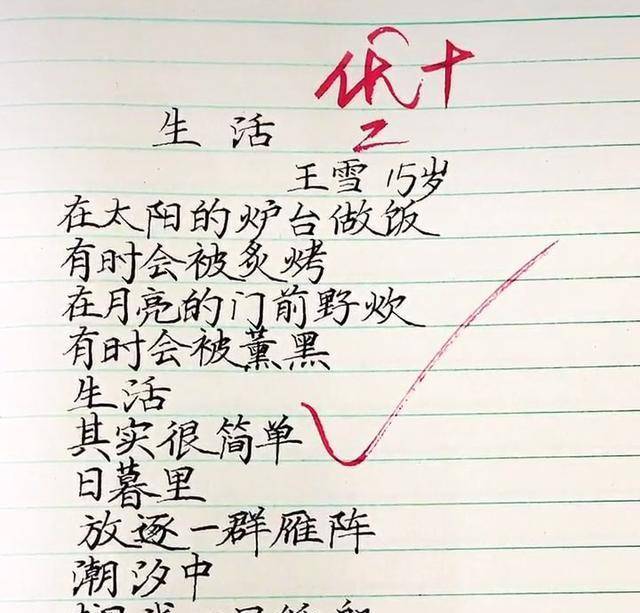 优+
2
生活
王雪 15岁
在太阳的炉台做饭
有时会被炙烤
在月亮的门前野炊
有时会被薰黑
生活
其实很简单
日暮里
放逐一群雁阵
潮汐中